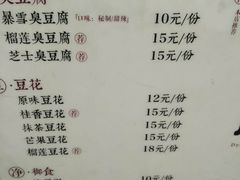 臭豆腐
暴雪臭豆腐「口味:秘制/甜辣」 10元/份
榴莲臭豆腐 荐 15元/份
芝士臭豆腐 荐 15元/份
豆花
原味豆花 12元/份
桂香豆花 荐 15元/份
抹茶豆花 15元/份
芒果豆花 15元/份
榴莲豆花 荐 18元/份
净·御食
10元/份